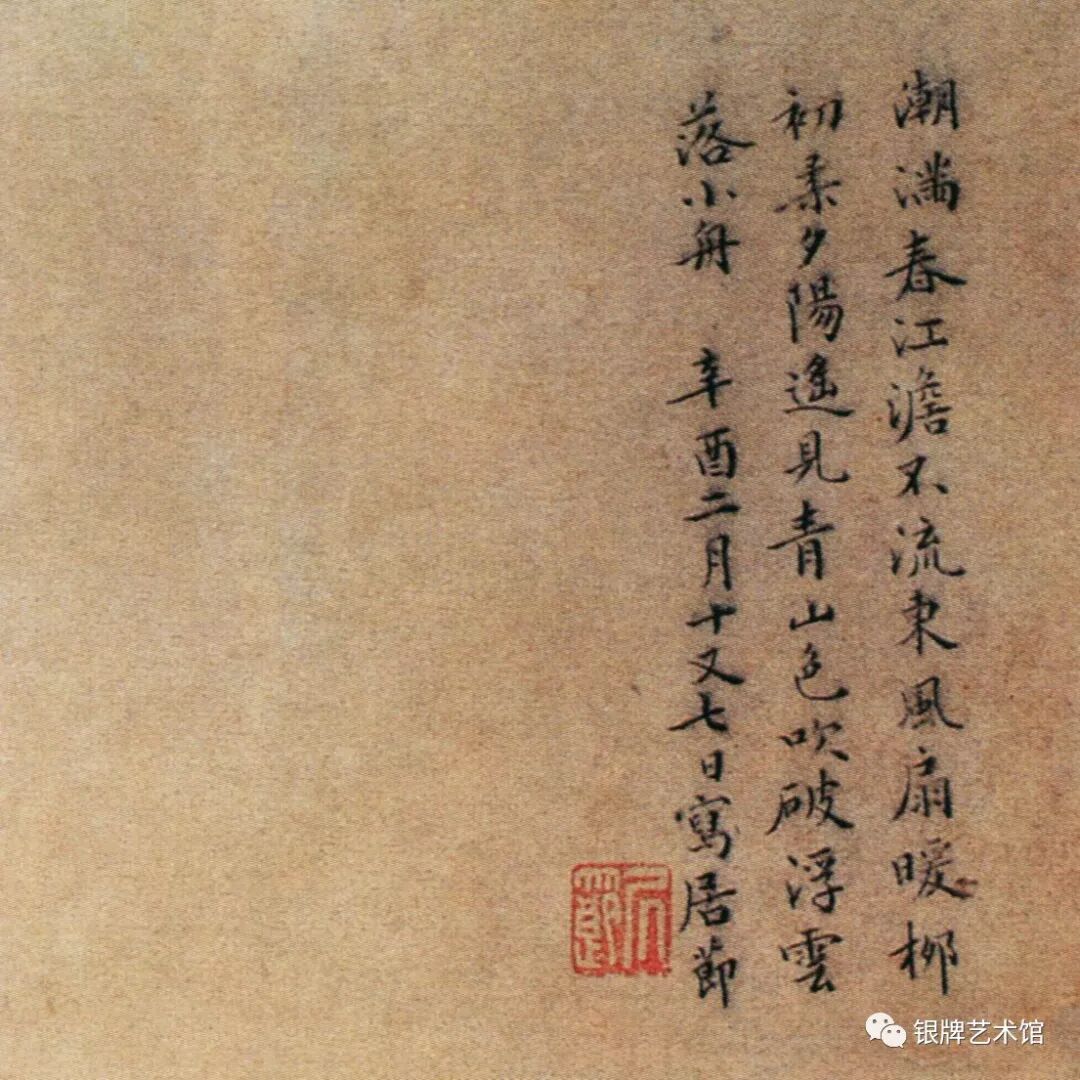 潮滿春江澹不流東風扇暖柳
初柔夕陽遙見青山色吹破浮雲
落小舟 辛酉二月十又七日寫居節
居節
银牌艺术馆